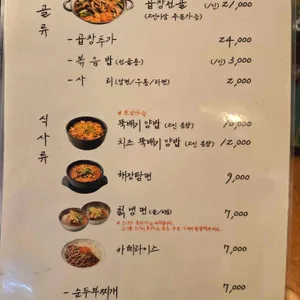 골류
곱창전골 (1인) 21,000
(2인이상 주문가능)
- 곱창추가 24,000
- 볶음밥 (전골용) 1인) 3,000
- 사리 (당면/우동/라면) 2,000
식사류
* 포장가능
뚝배기 양밥 (2인 분량) 10,000
치즈 뚝배기 양밥 (2인 분량) 12,000
해장라면 9,000
칡냉면 (물/비빔) 7,000
카레라이스 7,000
- 순두부찌개 7,000